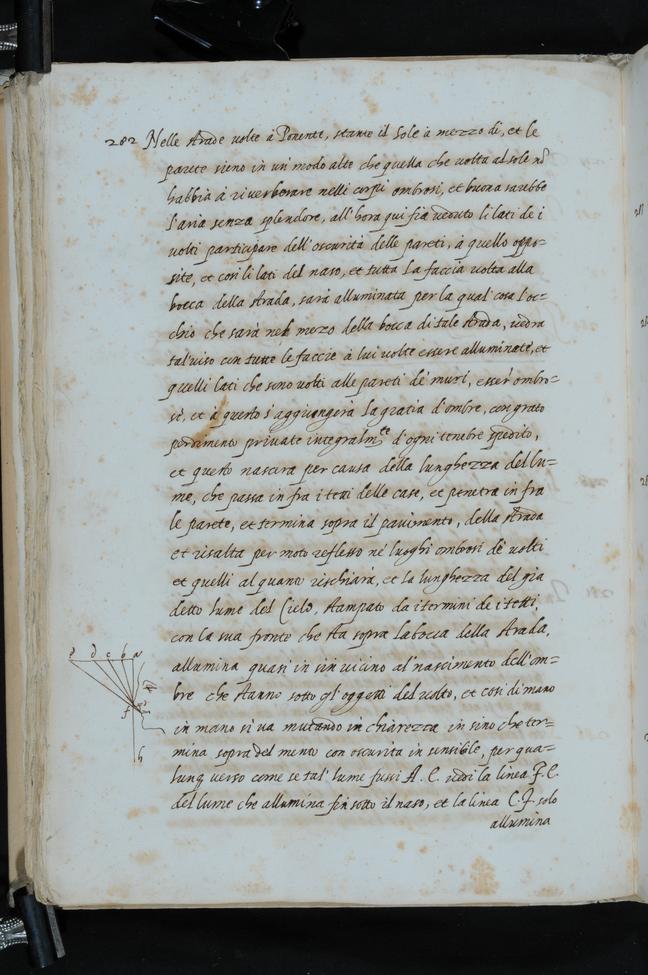 282 Nelle strade volte à Ponente, stante il Sole à mezzo dì, et le
parete sieno in un modo alte che quella che volta al sole nō
habbia à riverberare nelli corpi ombrosi, et buona sarebbe
l'aria senza splendore, all'hora qui fia veduto li lati de i
volti participare dell'oscurità delle pareti, à quello oppo=
site, et così li lati del naso, et tutta la faccia volta alla
bocca della strada, sarà alluminata per la qual cosa l'oc=
chio che sarà nel mezo della bocca di tale strada, vedra
tal viso con tutte le faccie à lui volte essere alluminate, et
quelli lati che sono volti alle pareti de' muri, esser ombro=
si, et à questo s'aggiungerà la gratia d'ombre, con grato
perdimento private integralm.te d'ogni tenebre spedito,
et questo nascera per causa della lunghezza del lu=
me, che passa in fra i tetti delle case, et penetra in fra
le parete, et termina sopra il pavimento, della strada
et risalta per moto reflesso ne' luoghi ombrosi de' volti
et quelli alquanto rischiara, et la lunghezza del gia
detto lume del Cielo, stampato da i termini de i tetti,
con la sua fronte che sta sopra la bocca della strada,
allumina quasi in sin vicino al nascimento dell'om=
bre che stanno sotto gl'oggetti del volto, et così di mano
in mano si va mutando in chiarezza in sino che ter=
mina sopra del mento con oscurita in sensibile, per qua=
lunq verso come se tal' lume fussi A. E. vedi la linea F. E.
del lume che allumina fin sotto il naso, et la linea C. F. solo
allumina
d c b a
f
h